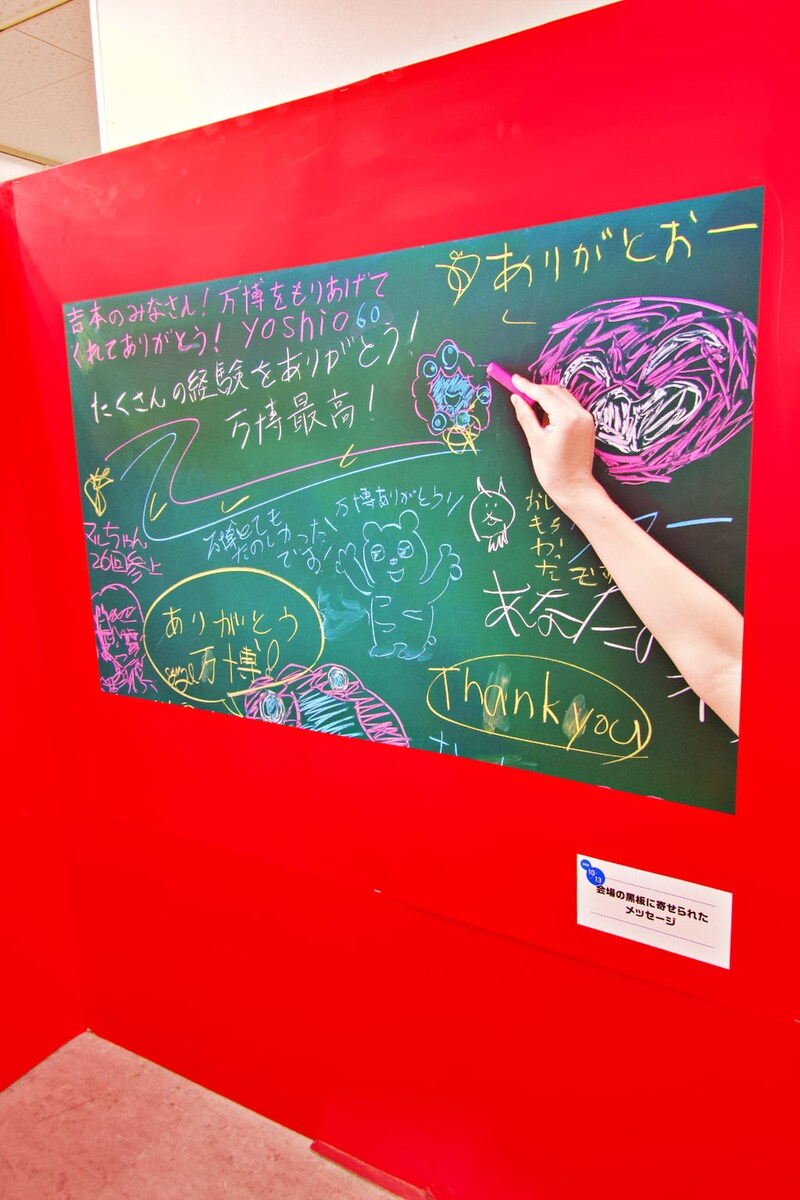 ありがとおー
吉本のみなさん！万博をもりあげて
くれてありがとう！yoshio60
たくさんの経験をありがとう！
万博最高！
万博ありがとう！
万博とても
たのしかった
です！
マルちゃん
26回参上
ありがとう
万博！
あなた
Thank you
10/13
会場の黒板に寄せられた
メッセージ